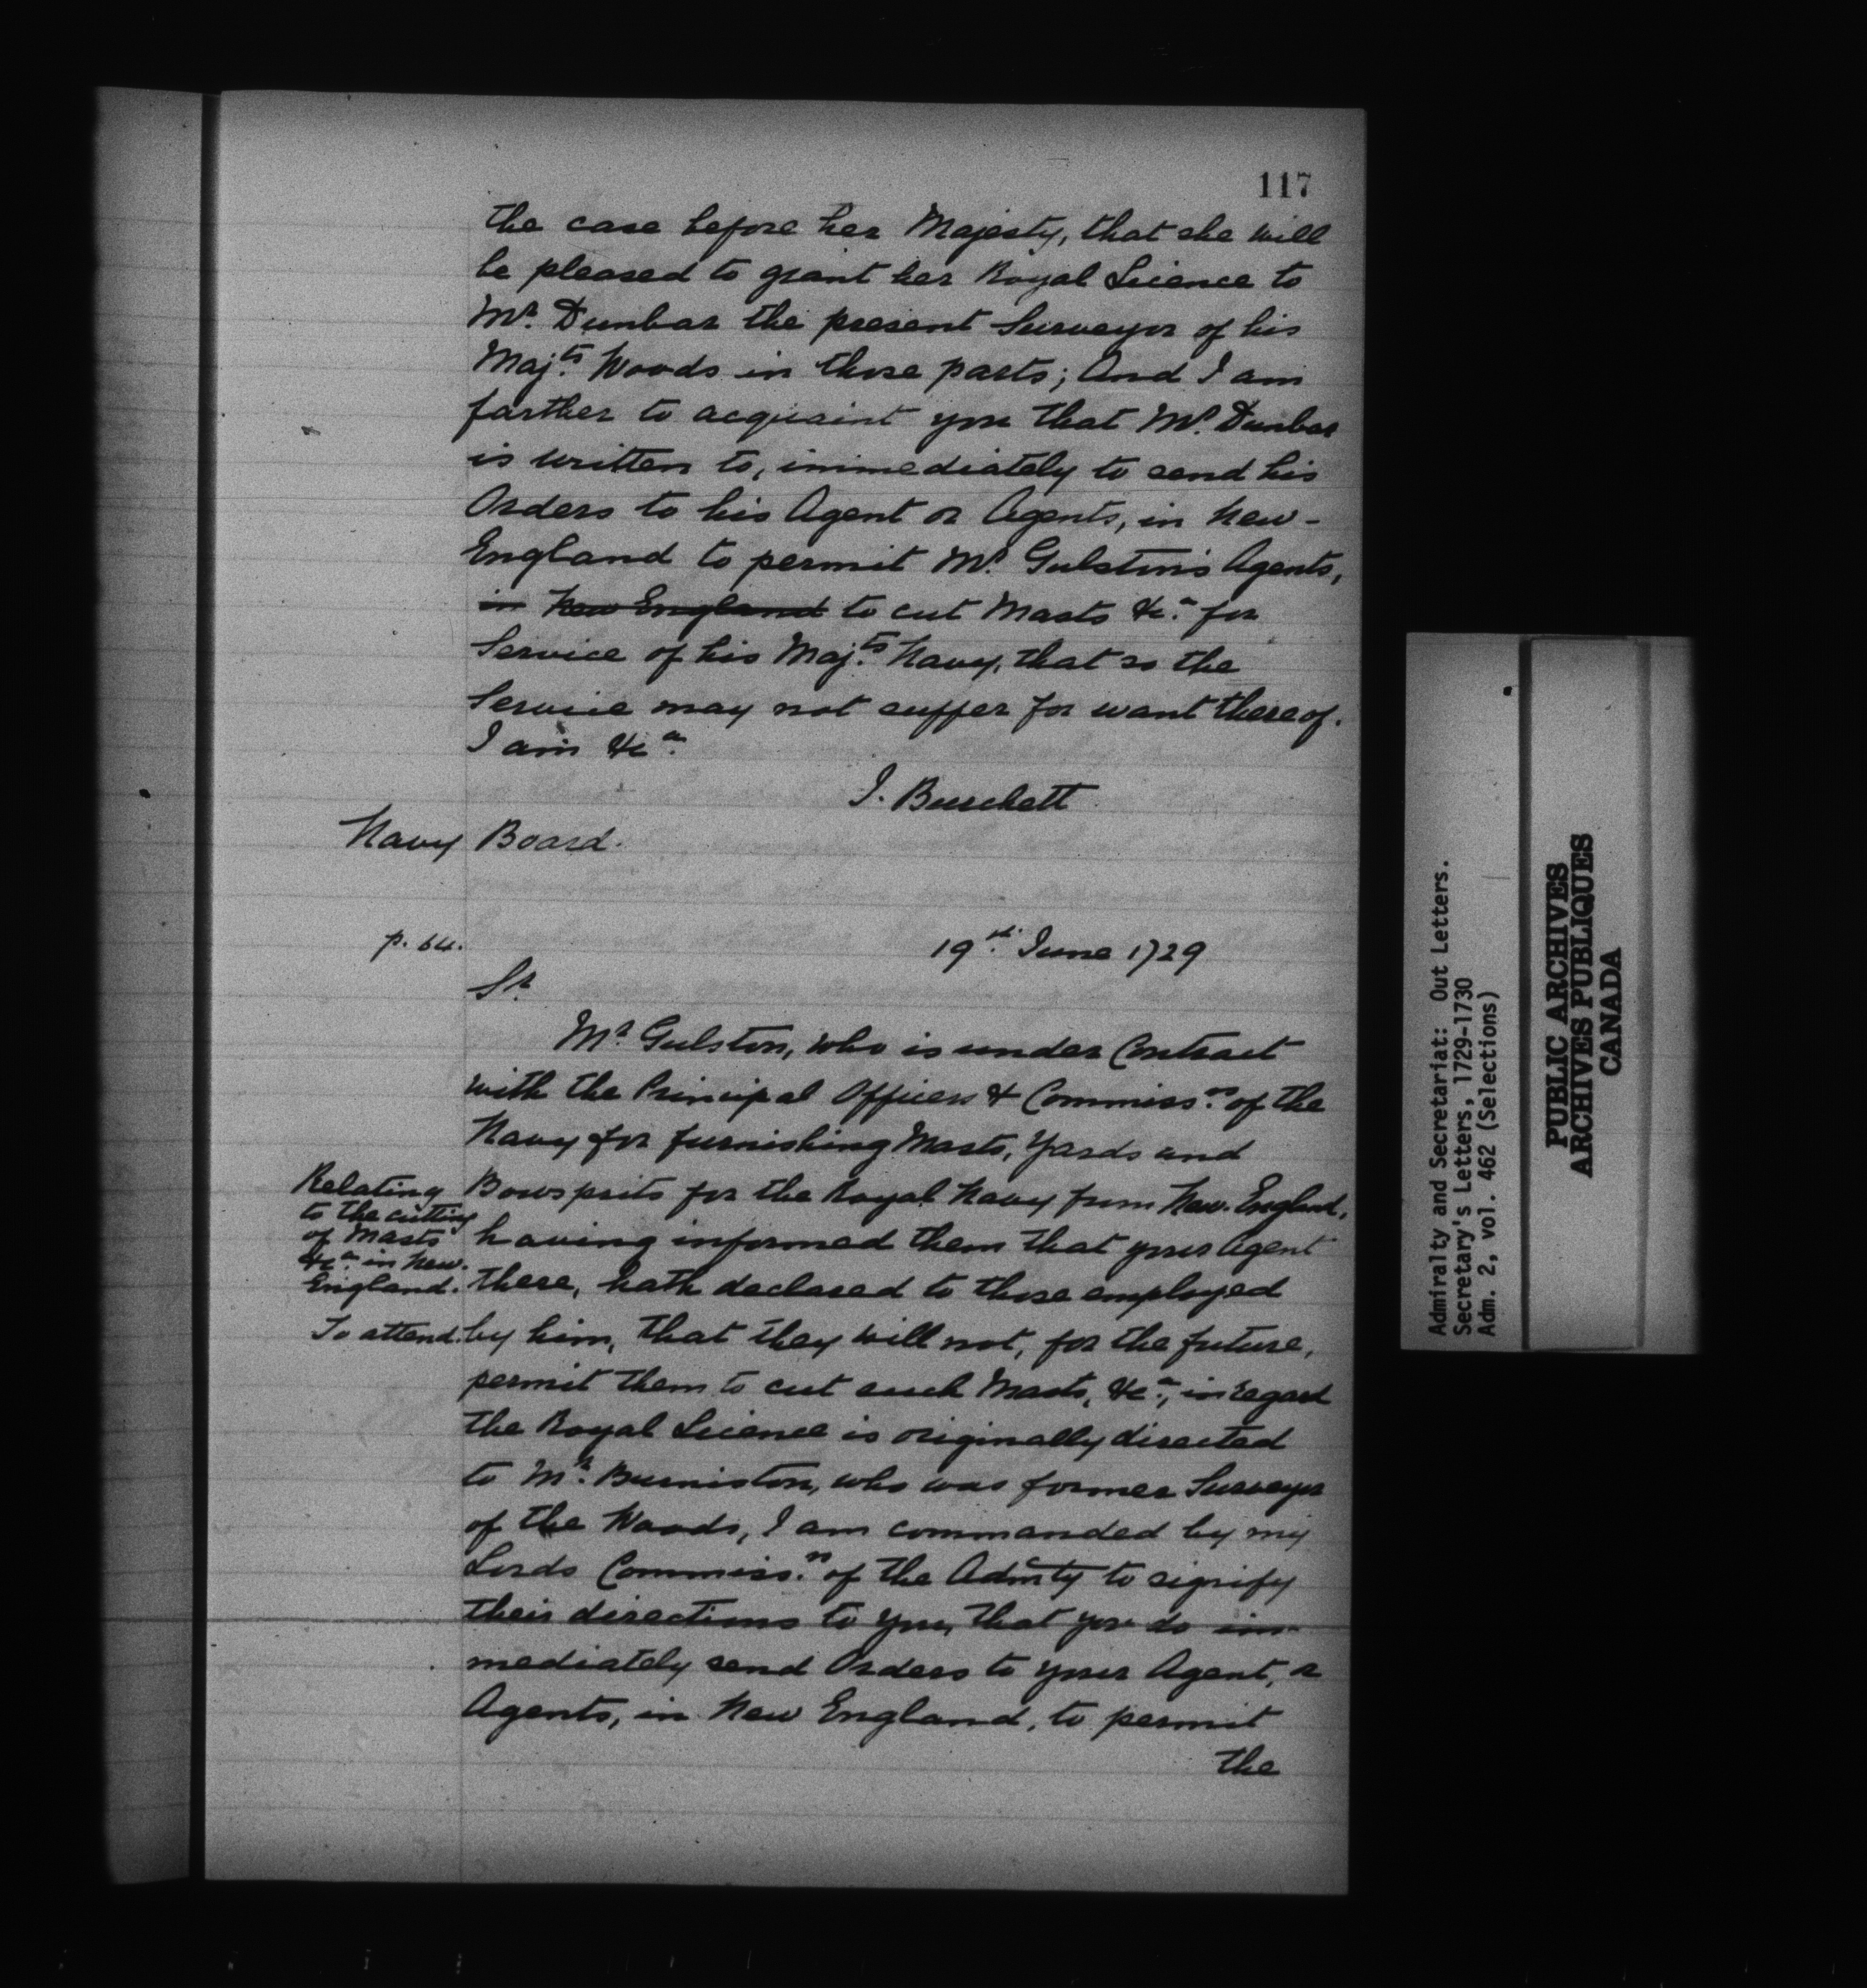 117
the case before her Majesty, that she will
be pleased to grant her Royal Licence to
Mr. Dunbar the present Surveyor of his
Maj.ts Woods in those parts; And I am
farther to acquaint you that Mr. Dunbar
is written to, immediately to send his
Orders to his Agent or Agents, in New-
England to permit Mr. Gulston's Agents,
in New England to cut Masts &ca. for
Service of his Maj.ts Navy, that so the
Service may not suffer for want thereof.
I am &ca.
J. Burchett
Navy Board.
p. 64.
19th. June 1729
Sr.
Mr. Gulston, who is under Contract
with the Principal Officers & Commissrs. of the
Navy for furnishing Masts, Yards and
Bowsprits for the Royal Navy from New-England,
having informed them that your Agent
there, hath declared to those employed
by him, that they will not, for the future,
permit them to cut such Masts, &ca., in regard
the Royal Licence is originally directed
to Mr. Burniston, who was former Surveyor
of the Woods, I am commanded by my
Lords Commissrs. of the Admty to signify
their directions to you, that you do im-
mediately send Orders to your Agent, or
Agents, in New England, to permit
the
Relating
to the cutting
of Masts
&ca. in New-
England.
To attend.
Admiralty and Secretariat: Out Letters.
Secretary's Letters, 1729-1730
Adm. 2, vol. 462 (Selections)
PUBLIC ARCHIVES
ARCHIVES PUBLIQUES
CANADA